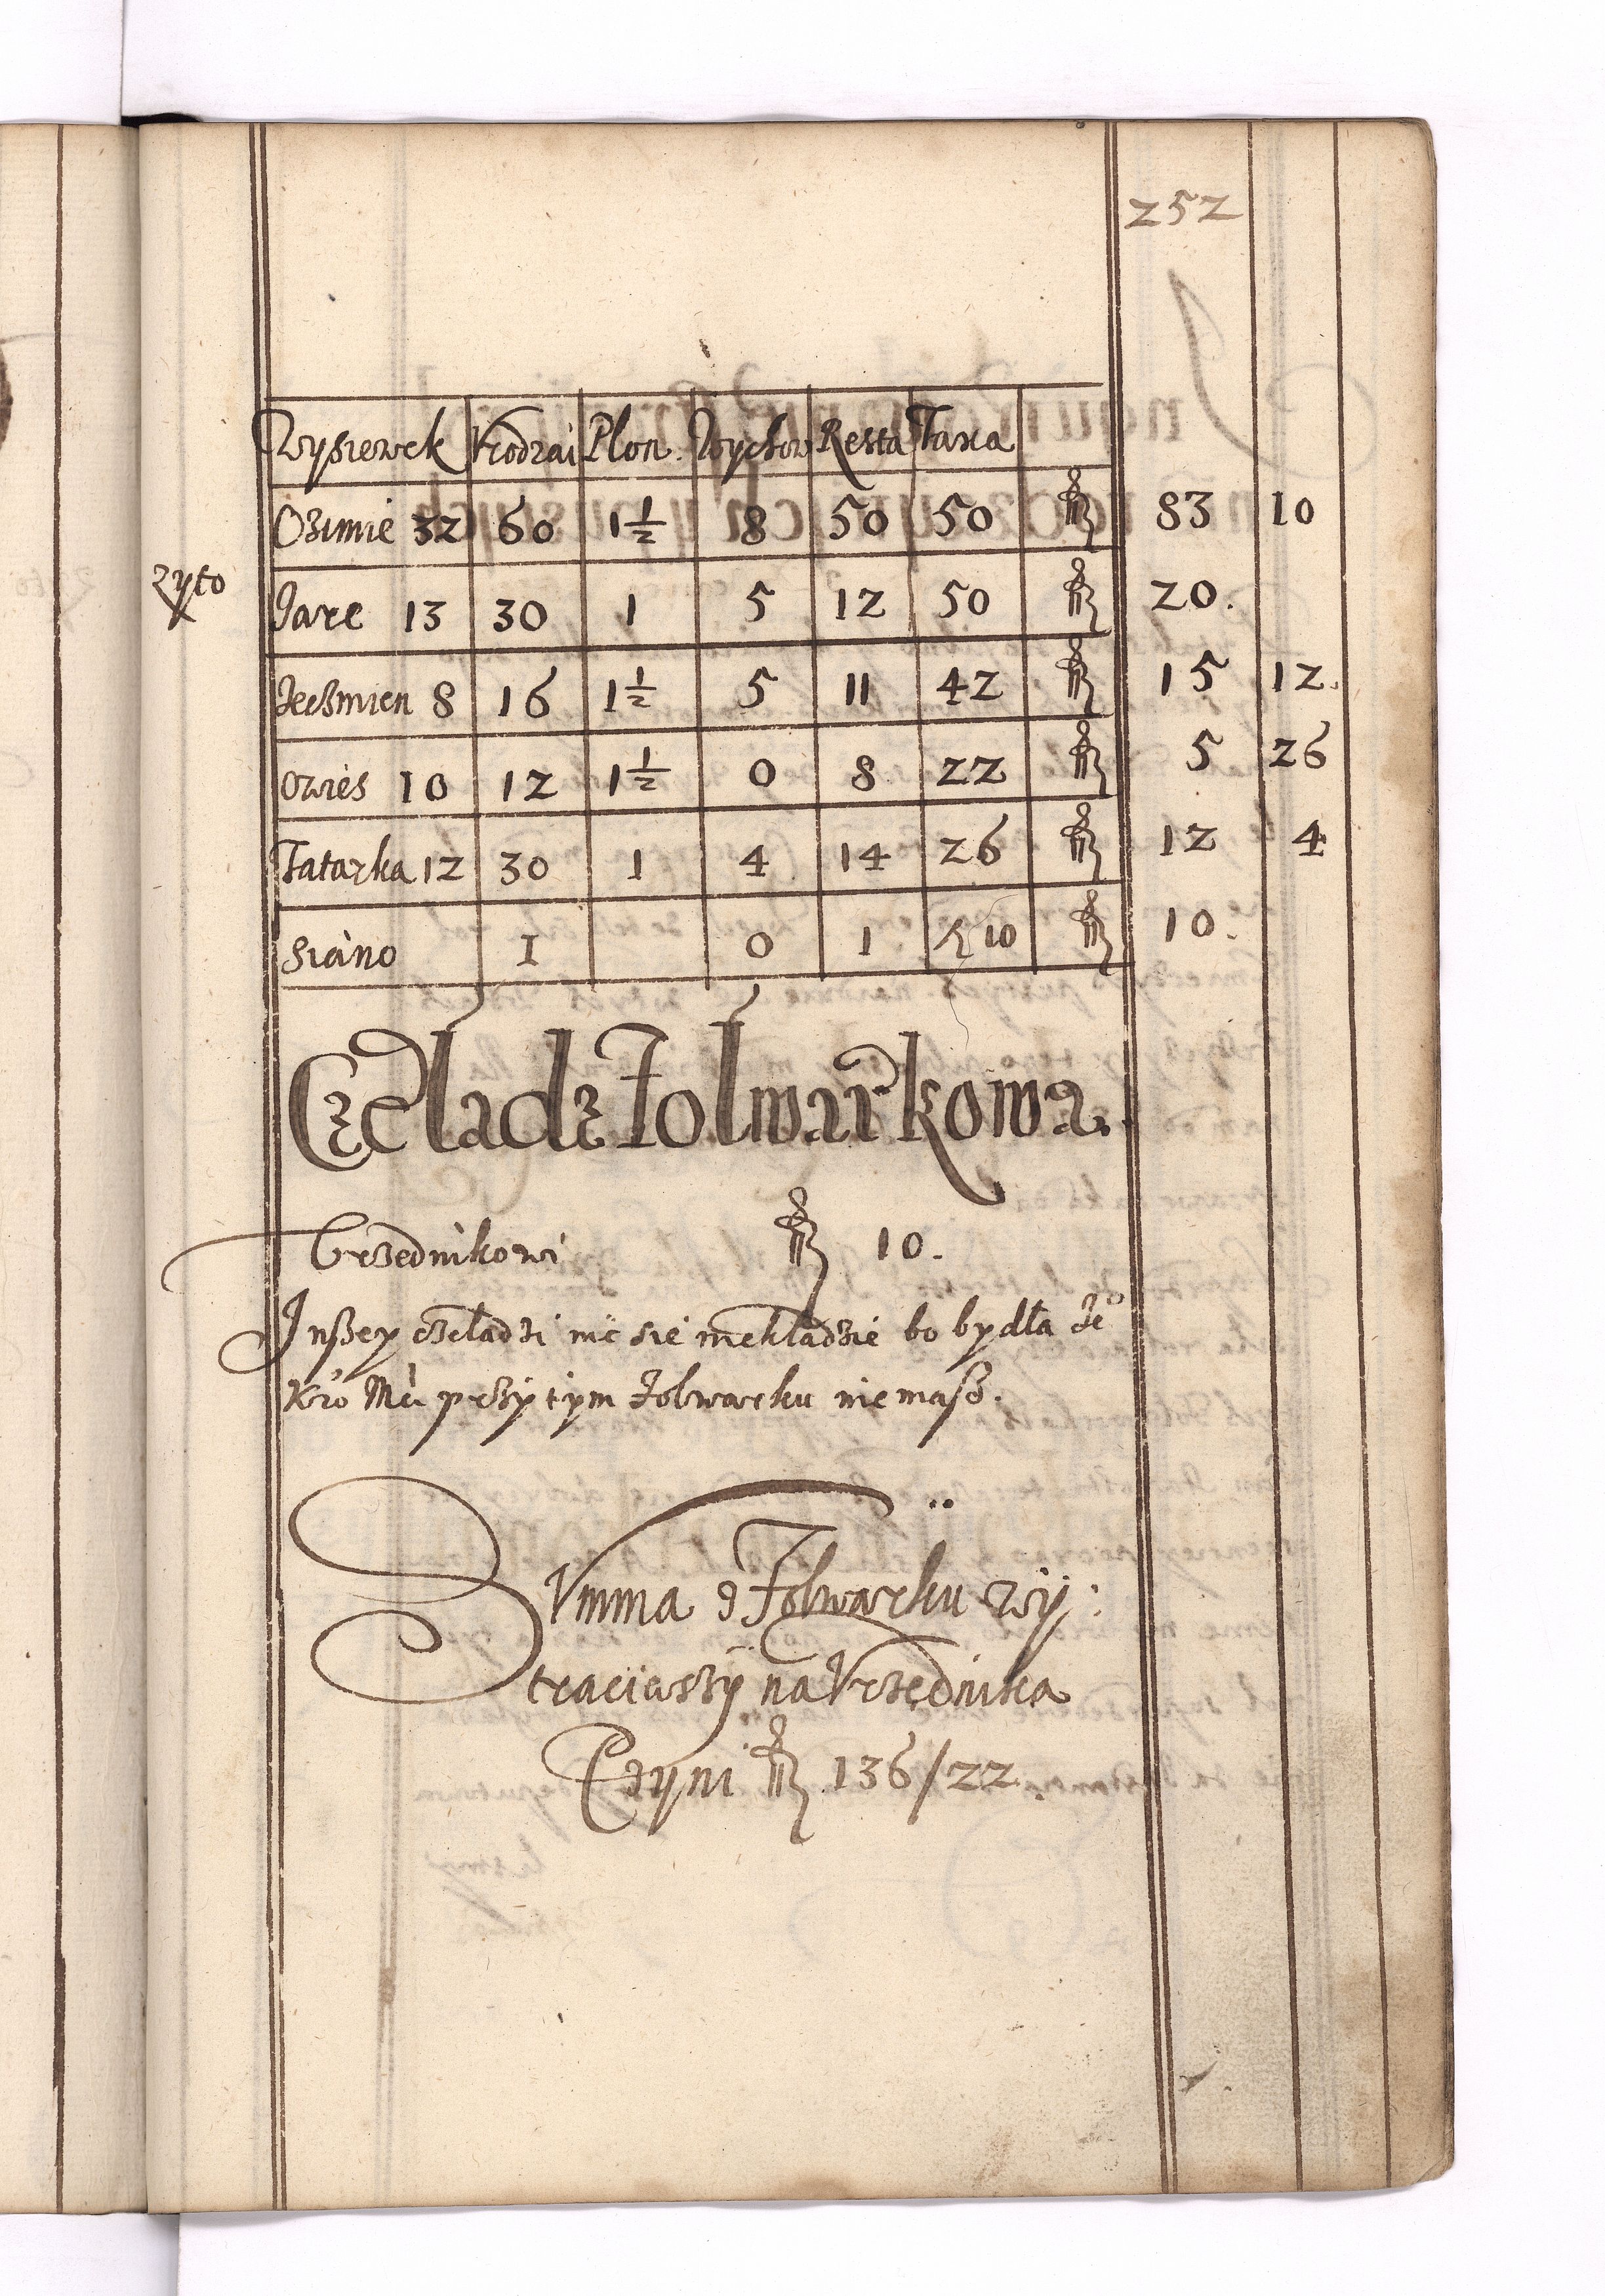 252
Wysiewek Vrodzai Plon. Wychow Resta Taxa
Ozimie 32 60 1½ 8 50 50 83 10
Zyto
Jare 13 30 1 5 12 50 20.
Jeczmien 8 16 1½ 5 11 42 15 12.
Owies 10 12 1½ 0 8 22 5 26
Tatarka 12 30 1 4 14 26 12 4
Siano 1 0 1 10 10.
Czeladz Folwarkowa.
Vrzednikowi 10.
Inßey czeladzi nic sie niekladzie bo bydła Je°
Kró Mci przÿ tÿm Folwarku nie masz.
Summa z Folwarku wÿ:
traciwszÿ na Vrzędnika
Czyni 136/22.